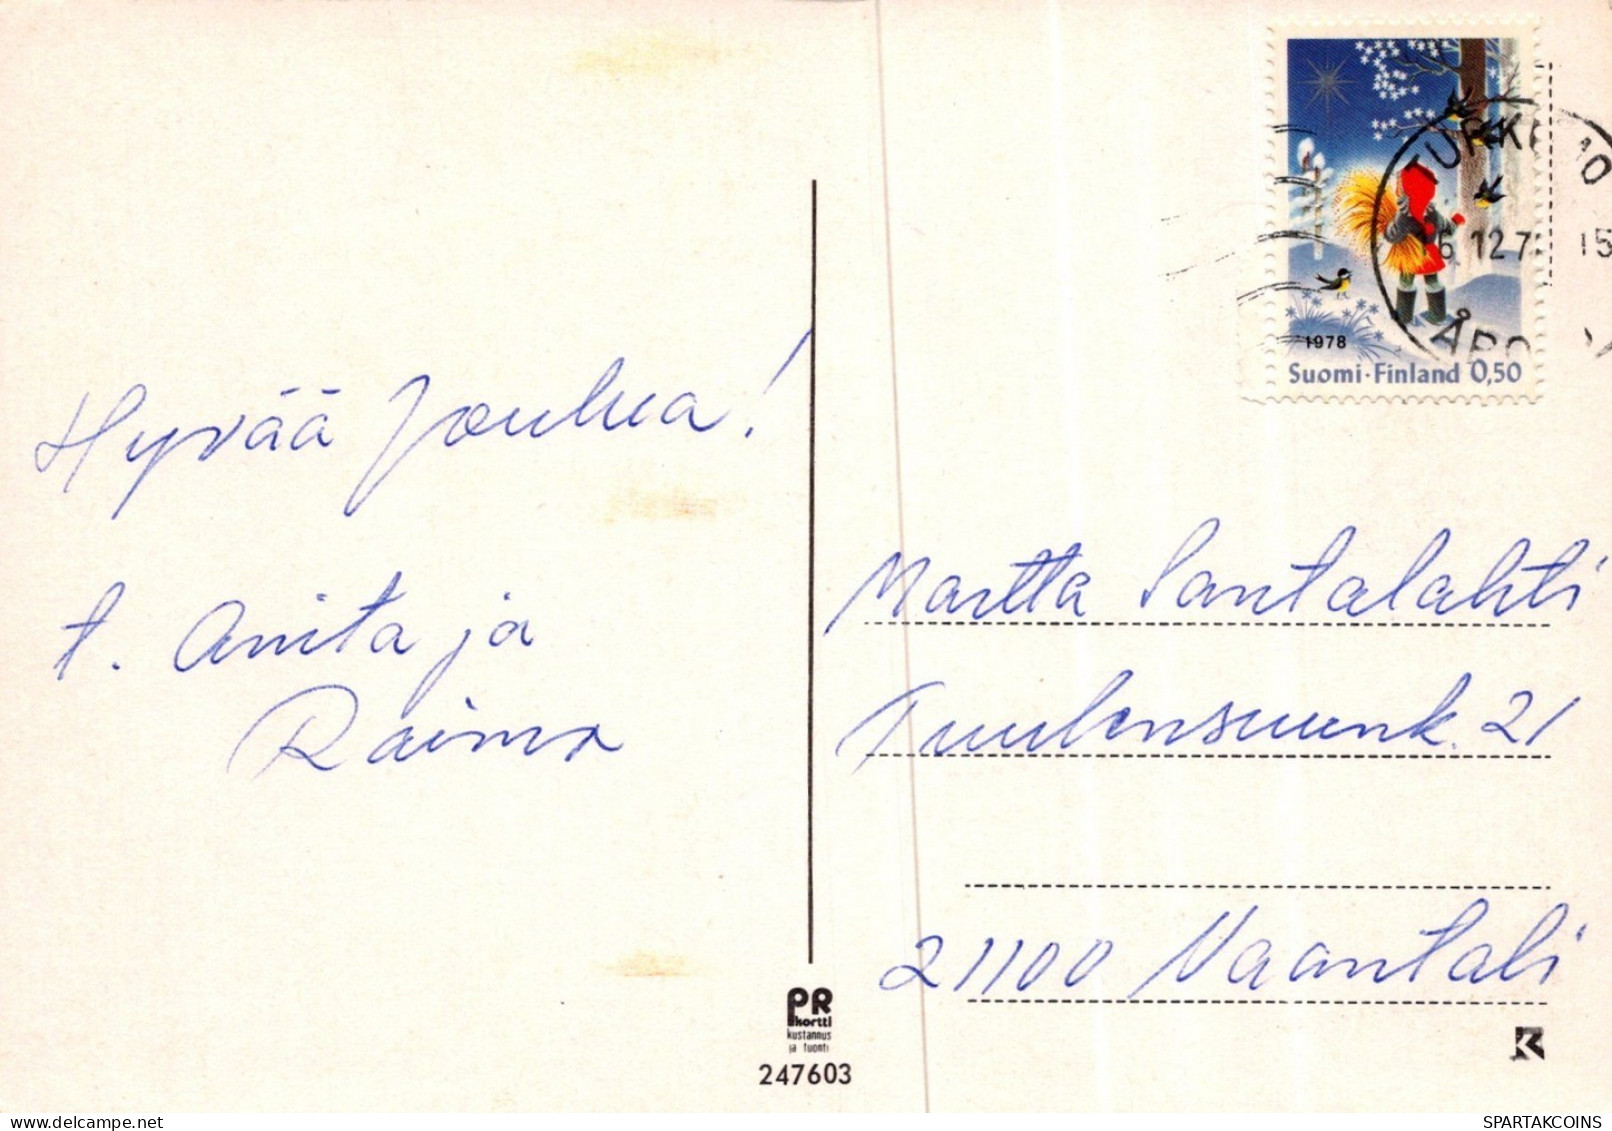 Hyvää Joulua!
t. Anita ja
Raimo
TURKU
12.7
15
ÅBO
1978
Suomi·Finland 0,50
Martta Santalahti
Tuulensuunk. 21
21100 Naantali
PR
kortti
kustannus
ja tuonti
247603
SPARTAKCOINS